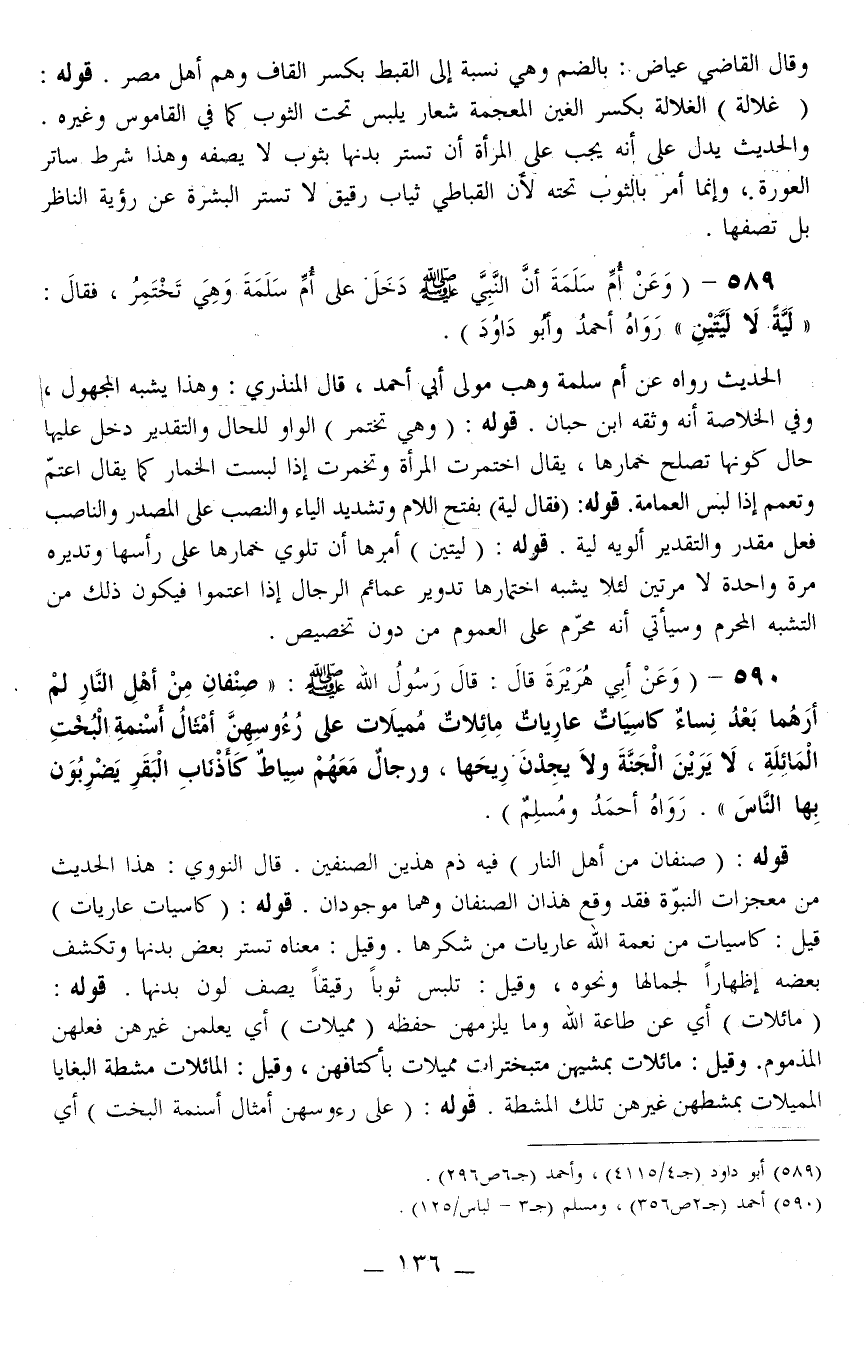 وقال القاضي عياض : بالضم وهي نسبة إلى القبط بكسر القاف وهم أهل مصر . قوله :
( غلالة ) الغلالة بكسر الغين المعجمة شعار يلبس تحت الثوب كما في القاموس وغيره .
والحديث يدل على أنه يجب على المرأة أن تستر بدنها بثوب لا يصفه وهذا شرط ساتر
العورة ، وإنما أمر بالثوب تحته لأن القباطي ثياب رقيق لا تستر البشرة عن رؤية الناظر
بل تصفها .
٥٨٩ - ( وَعَنْ أُمِّ سَلَمَةَ أنَّ النَّبِيَّ ﷺ دَخَلَ على أُمِّ سَلَمَةَ وَهِيَ تَخْتَمِرُ ، فقالَ :
« لَيَّةً لَا لَيَّتَيْنِ » رَوَاهُ أحمدُ وأبُو دَاوُدَ ) .
الحديث رواه عن أم سلمة وهب مولى أبي أحمد ، قال المنذري : وهذا يشبه المجهول ،
وفي الخلاصة أنه وثقه ابن حبان . قوله : ( وهي تختمر ) الواو للحال والتقدير دخل عليها
حال كونها تصلح خمارها ، يقال اختمرت المرأة وتخمرت إذا لبست الخمار كما يقال اعتمّ
وتعمم إذا لبس العمامة. قوله: (فقال لية) بفتح اللام وتشديد الياء والنصب على المصدر والناصب
فعل مقدر والتقدير ألويه لية . قوله : ( ليتين ) أمرها أن تلوي خمارها على رأسها وتديره
مرة واحدة لا مرتين لئلا يشبه اختمارها تدوير عمائم الرجال إذا اعتموا فيكون ذلك من
التشبه المحرم وسيأتي أنه محرّم على العموم من دون تخصيص .
٥٩٠ - ( وَعَنْ أبِي هُرَيْرَةَ قالَ : قالَ رَسُولُ الله ﷺ : « صِنْفانِ مِنْ أهْلِ النَّارِ لمْ
أرَهُما بَعْدُ نِساءٌ كاسِيَاتٌ عارِياتٌ مائِلاتٌ مُميلَات على رُءُوسِهِنَّ أمْثَالُ أَسْنمةِ الْبُخْتِ
الْمَائِلَةِ ، لَا يَرَيْنَ الْجَنَّةَ ولاَ يجِدْنَ رِيحَها ، ورجالٌ مَعَهُمْ سِياطٌ كَأَذْنَابِ الْبَقَرِ يَضْرِبُوَن
بِها النَّاسَ » . رَوَاهُ أحمَدُ ومُسلِمٌ ) .
قوله : ( صنفان من أهل النار ) فيه ذم هذين الصنفين . قال النووي : هذا الحديث
من معجزات النبوّة فقد وقع هذان الصنفان وهما موجودان . قوله : ( كاسيات عاريات )
قيل : كاسيات من نعمة الله عاريات من شكرها . وقيل : معناه تستر بعض بدنها وتكشف
بعضه إظهاراً لجمالها ونحوه ، وقيل : تلبس ثوباً رقيقاً يصف لون بدنها . قوله :
( مائلات ) أي عن طاعة الله وما يلزمهن حفظه ( مميلات ) أي يعلمن غيرهن فعلهن
المذموم. وقيل : مائلات بمشيهن متبخترات مميلات بأكتافهن ، وقيل : المائلات مشطة البغايا
المميلات بمشطهن غيرهن تلك المشطة . قوله : ( على رءوسهن أمثال أسنمة البخت ) أي
(٥٨٩) أبو داود (جـ٤/٤١١٥) ، وأحمد (جـ٦ص٢٩٦) .
(٥٩٠) أحمد (جـ٢ص٣٥٦) ، ومسلم (جـ٣ - لباس/١٢٥) .
_ ١٣٦ _